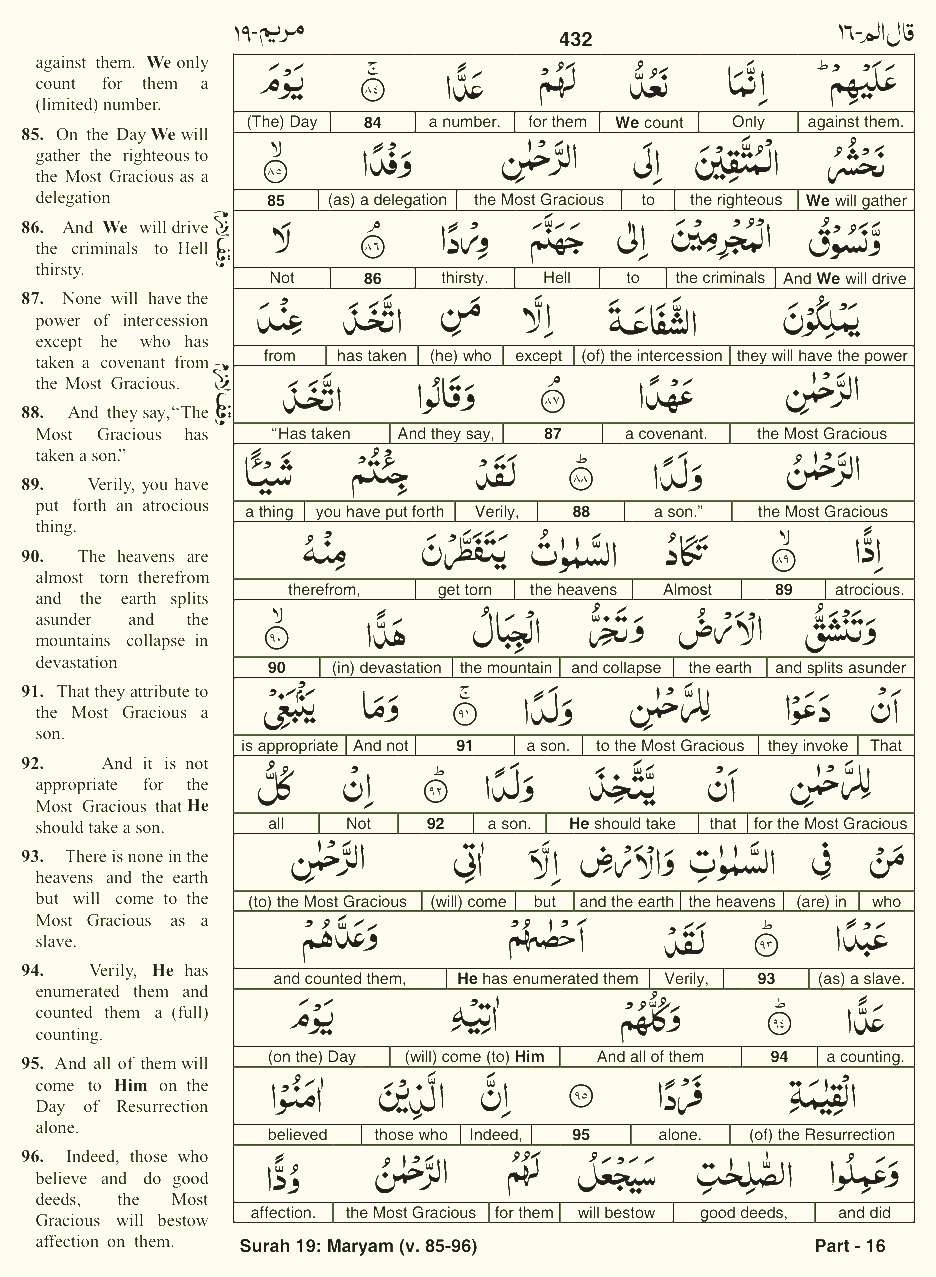 قال الم-١٦
432
مريم-١٩
against them. We only
count for them a
(limited) number.
85. On the Day We will
gather the righteous to
the Most Gracious as a
delegation
86. And We will drive
the criminals to Hell
thirsty.
87. None will have the
power of intercession
except he who has
taken a covenant from
the Most Gracious.
88. And they say, “The
Most Gracious has
taken a son.”
89. Verily, you have
put forth an atrocious
thing.
90. The heavens are
almost torn therefrom
and the earth splits
asunder and the
mountains collapse in
devastation
91. That they attribute to
the Most Gracious a
son.
92. And it is not
appropriate for the
Most Gracious that He
should take a son.
93. There is none in the
heavens and the earth
but will come to the
Most Gracious as a
slave.
94. Verily, He has
enumerated them and
counted them a (full)
counting.
95. And all of them will
come to Him on the
Day of Resurrection
alone.
96. Indeed, those who
believe and do good
deeds, the Most
Gracious will bestow
affection on them.
عَلَيْهِمْ ؕ اِنَّمَا نَعُدُّ لَهُمْ عَدًّا ۚ ﴿٨٤﴾ يَوْمَ
(The) Day 84 a number. for them We count Only against them.
نَحْشُرُ الْمُتَّقِيْنَ اِلَى الرَّحْمٰنِ وَفْدًا ۙ ﴿٨٥﴾
85 (as) a delegation the Most Gracious to the righteous We will gather
وَّنَسُوْقُ الْمُجْرِمِيْنَ اِلٰى جَهَنَّمَ وِرْدًا ۘ ﴿٨٦﴾ لَا
وقف لازم
Not 86 thirsty. Hell to the criminals And We will drive
يَمْلِكُوْنَ الشَّفَاعَةَ اِلَّا مَنِ اتَّخَذَ عِنْدَ
from has taken (he) who except (of) the intercession they will have the power
الرَّحْمٰنِ عَهْدًا ۘ ﴿٨٧﴾ وَقَالُوا اتَّخَذَ
وقف لازم
“Has taken And they say, 87 a covenant. the Most Gracious
الرَّحْمٰنُ وَلَدًا ؕ ﴿٨٨﴾ لَقَدْ جِئْتُمْ شَيْـًٔا
a thing you have put forth Verily, 88 a son.” the Most Gracious
اِدًّا ۙ ﴿٨٩﴾ تَكَادُ السَّمٰوٰتُ يَتَفَطَّرْنَ مِنْهُ
therefrom, get torn the heavens Almost 89 atrocious.
وَتَنْشَقُّ الْاَرْضُ وَتَخِرُّ الْجِبَالُ هَدًّا ۙ ﴿٩٠﴾
90 (in) devastation the mountain and collapse the earth and splits asunder
اَنْ دَعَوْا لِلرَّحْمٰنِ وَلَدًا ۚ ﴿٩١﴾ وَمَا يَنْۢبَغِيْ
is appropriate And not 91 a son. to the Most Gracious they invoke That
لِلرَّحْمٰنِ اَنْ يَّتَّخِذَ وَلَدًا ؕ ﴿٩٢﴾ اِنْ كُلُّ
all Not 92 a son. He should take that for the Most Gracious
مَنْ فِي السَّمٰوٰتِ وَالْاَرْضِ اِلَّاۤ اٰتِي الرَّحْمٰنِ
(to) the Most Gracious (will) come but and the earth the heavens (are) in who
عَبْدًا ؕ ﴿٩٣﴾ لَقَدْ اَحْصٰىهُمْ وَعَدَّهُمْ
and counted them, He has enumerated them Verily, 93 (as) a slave.
عَدًّا ؕ ﴿٩٤﴾ وَكُلُّهُمْ اٰتِيْهِ يَوْمَ
(on the) Day (will) come (to) Him And all of them 94 a counting.
الْقِيٰمَةِ فَرْدًا ﴿٩٥﴾ اِنَّ الَّذِيْنَ اٰمَنُوْا
believed those who Indeed, 95 alone. (of) the Resurrection
وَعَمِلُوا الصّٰلِحٰتِ سَيَجْعَلُ لَهُمُ الرَّحْمٰنُ وُدًّا
affection. the Most Gracious for them will bestow good deeds, and did
Surah 19: Maryam (v. 85-96)
Part - 16